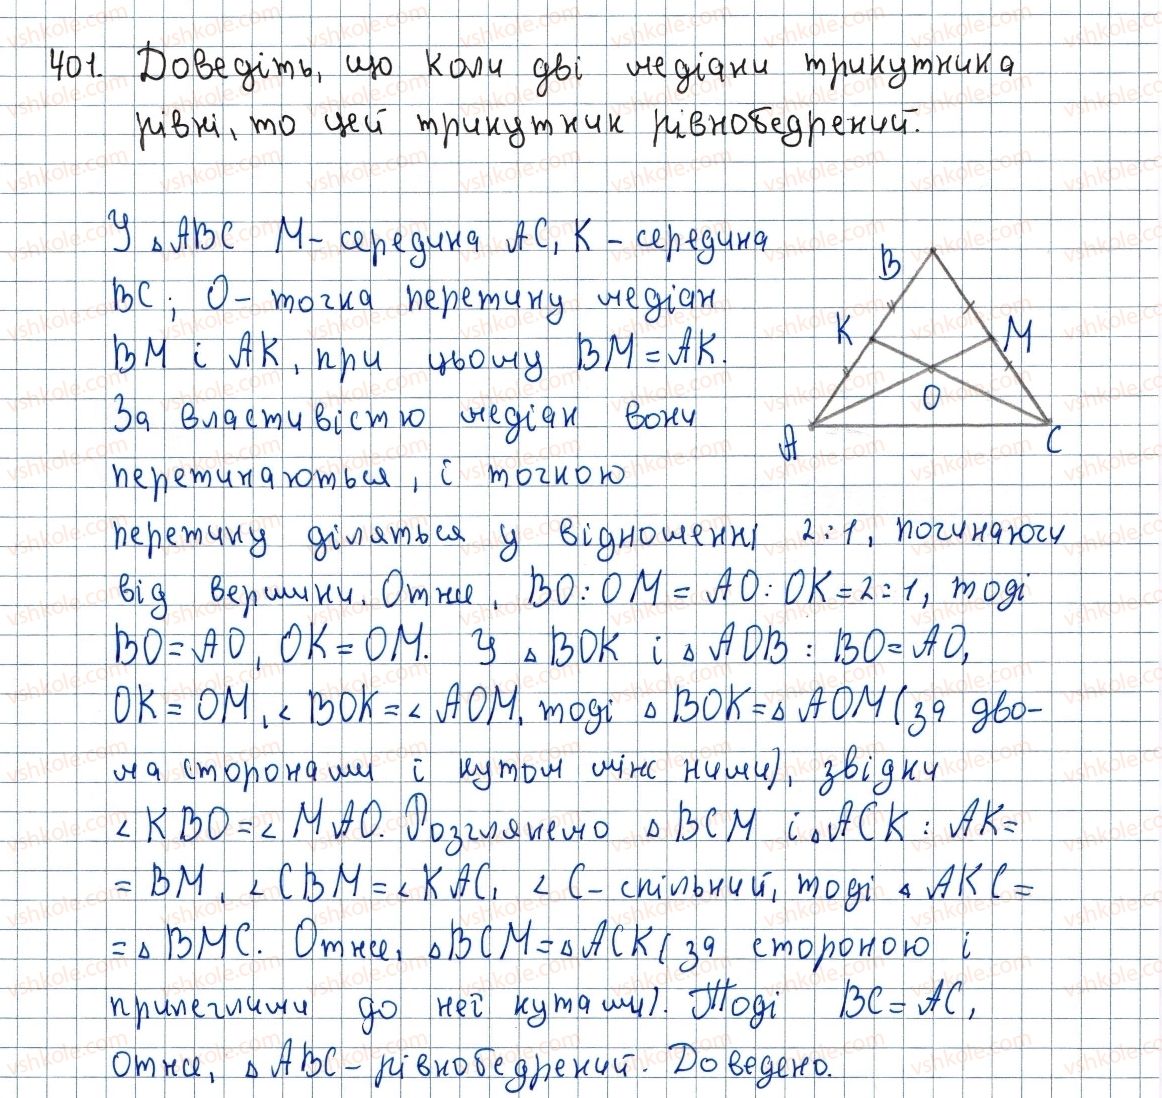 401. Доведіть, що коли дві медіани трикутника
рівні, то цей трикутник рівнобедрений.
У △ABC M - середина AC, K - середина
BC; O - точка перетину медіан
BM і AK, при цьому BM = AK.
За властивістю медіан вони
перетинаються, і точкою
перетину діляться у відношенні 2:1, починаючи
від вершини. Отже, BO : OM = AO : OK = 2:1, тоді
BO = AO, OK = OM. У △BOK і △AOB : BO = AO,
OK = OM, ∠BOK = ∠AOM, тоді △BOK = △AOM (за дво-
ма сторонами і кутом між ними), звідки
∠KBO = ∠MAO. Розглянемо △BCM і △ACK : AK =
= BM, ∠CBM = ∠KAC, ∠C - спільний, тоді △AKC =
= △BMC. Отже, △BCM = △ACK (за стороною і
прилеглими до неї кутами). Тоді BC = AC,
Отже, △ABC - рівнобедрений. Доведено.
B
K
M
O
A
C
vshkole.com